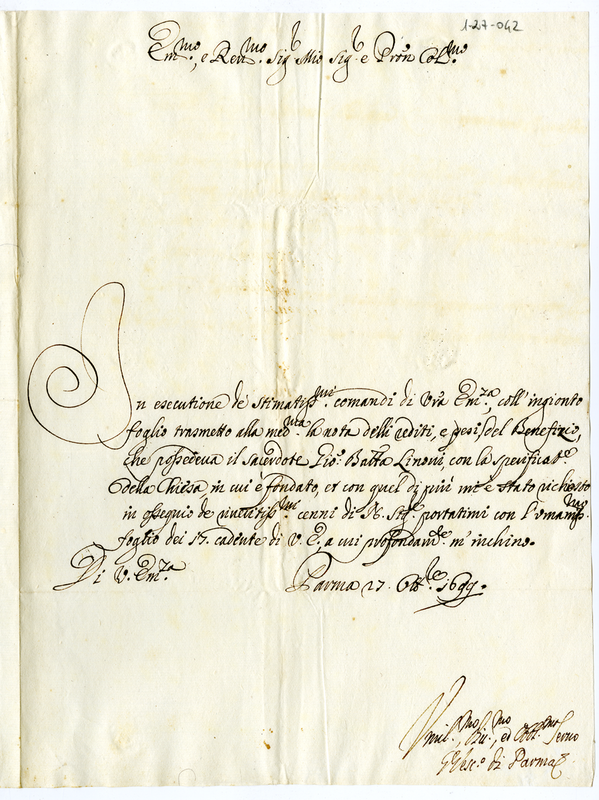 1-27-042
Em.mo, e Rev.mo Sig.r Mio Sig.r e Pron Col.mo
In esecutione de stimatiss.mi comandi di Vrã Em.za, coll'ingionto
foglio trasmetto alla med.ma la nota delli rediti, e pesi del Benefizio,
che possedeva il sacerdote Gio: Batta Linoni, con la specificat.e
della Chiesa in cui è fondato, et con quel di più mi è stato richiesto
in ossequio de cenni di N. Sig.re portatimi con l'umaniss.mo
foglio dei 17. cadente di V. E., a cui profondam.te m'inchino.
Di V. Em.za
Parma 27. Ott.re 1699.
Umil.mo, Div.mo, ed Obl.mo Servo
Il Vesc.o di Parma